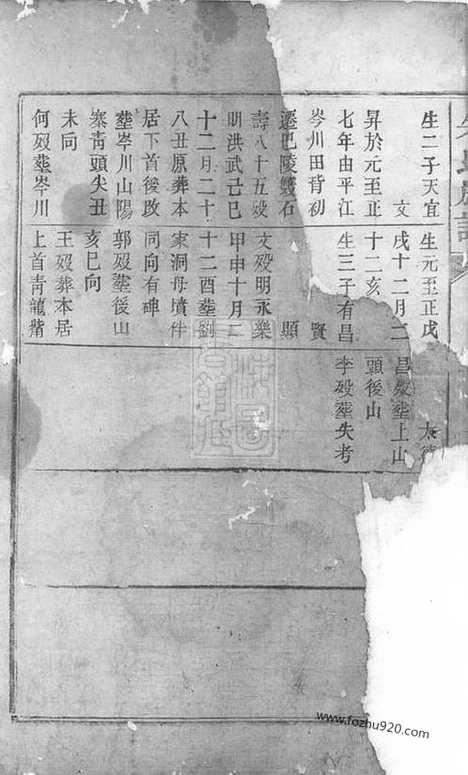 生二子天宜
文
昇於元至正
七年由平江
岑川田背刱
遷巴陵雙石
壽八十五歿
明洪武己巳
十二月二十
八丑原葬本
居下首後改
塟岑川山陽
寨靑頭尖丑
未向
何歿塟岑川
生元至正戊
戌十二月二
十二亥
生三子有昌
賢
顯
文歿明永樂
甲申十月二
十二酉塟劉
家洞母墳伴
同向有碑
郭歿塟後山
亥巳向
王歿葬本居
上首靑龍嘴
昌歿塟上山
頭後山
李歿塟失考
www.fozhu920.com